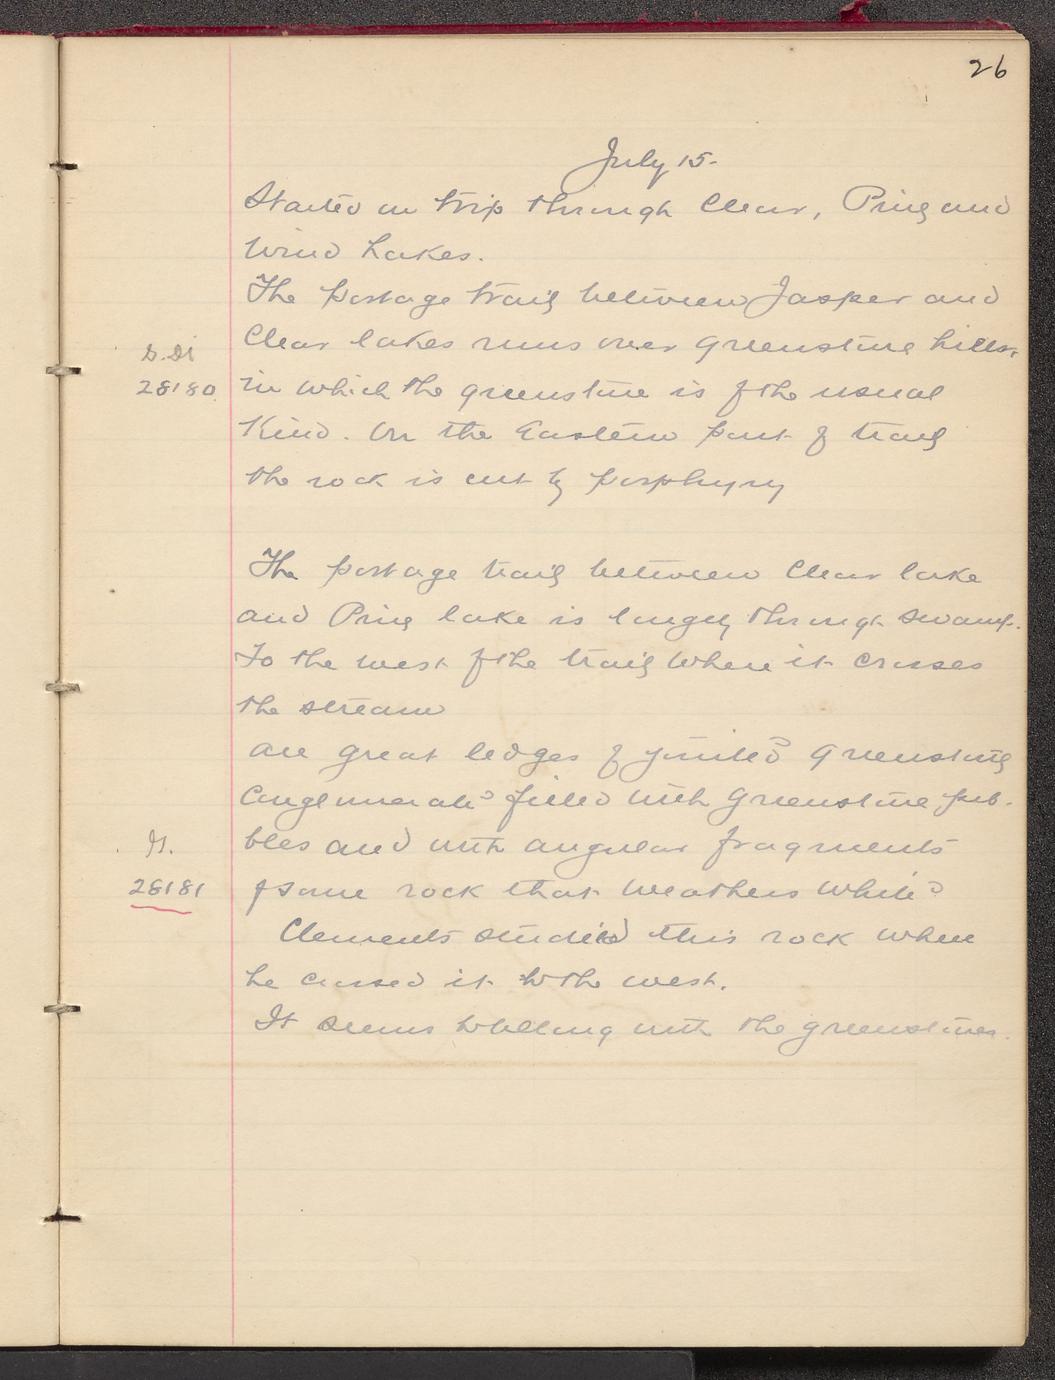 26
July 15-
Started on trip through Clear, Pine and
Wind Lakes.
The portage trail between Jasper and
Clear lakes runs over greenstone hills,
28180
in which the greenstone is of the usual
Kind. On the Eastern part of trail
the rock is cut by porphyry
The portage trail between Clear lake
and Pine lake is largely through swamp.
To the west of the trail where it crosses
the stream
are great ledges of jointed greenstone
Conglomerate filled with greenstone peb-
bles and with angular fragments
28181
of some rock that weathers white
Clements studied this rock when
he crossed it to the west.
It seems to belong with the greenstones.